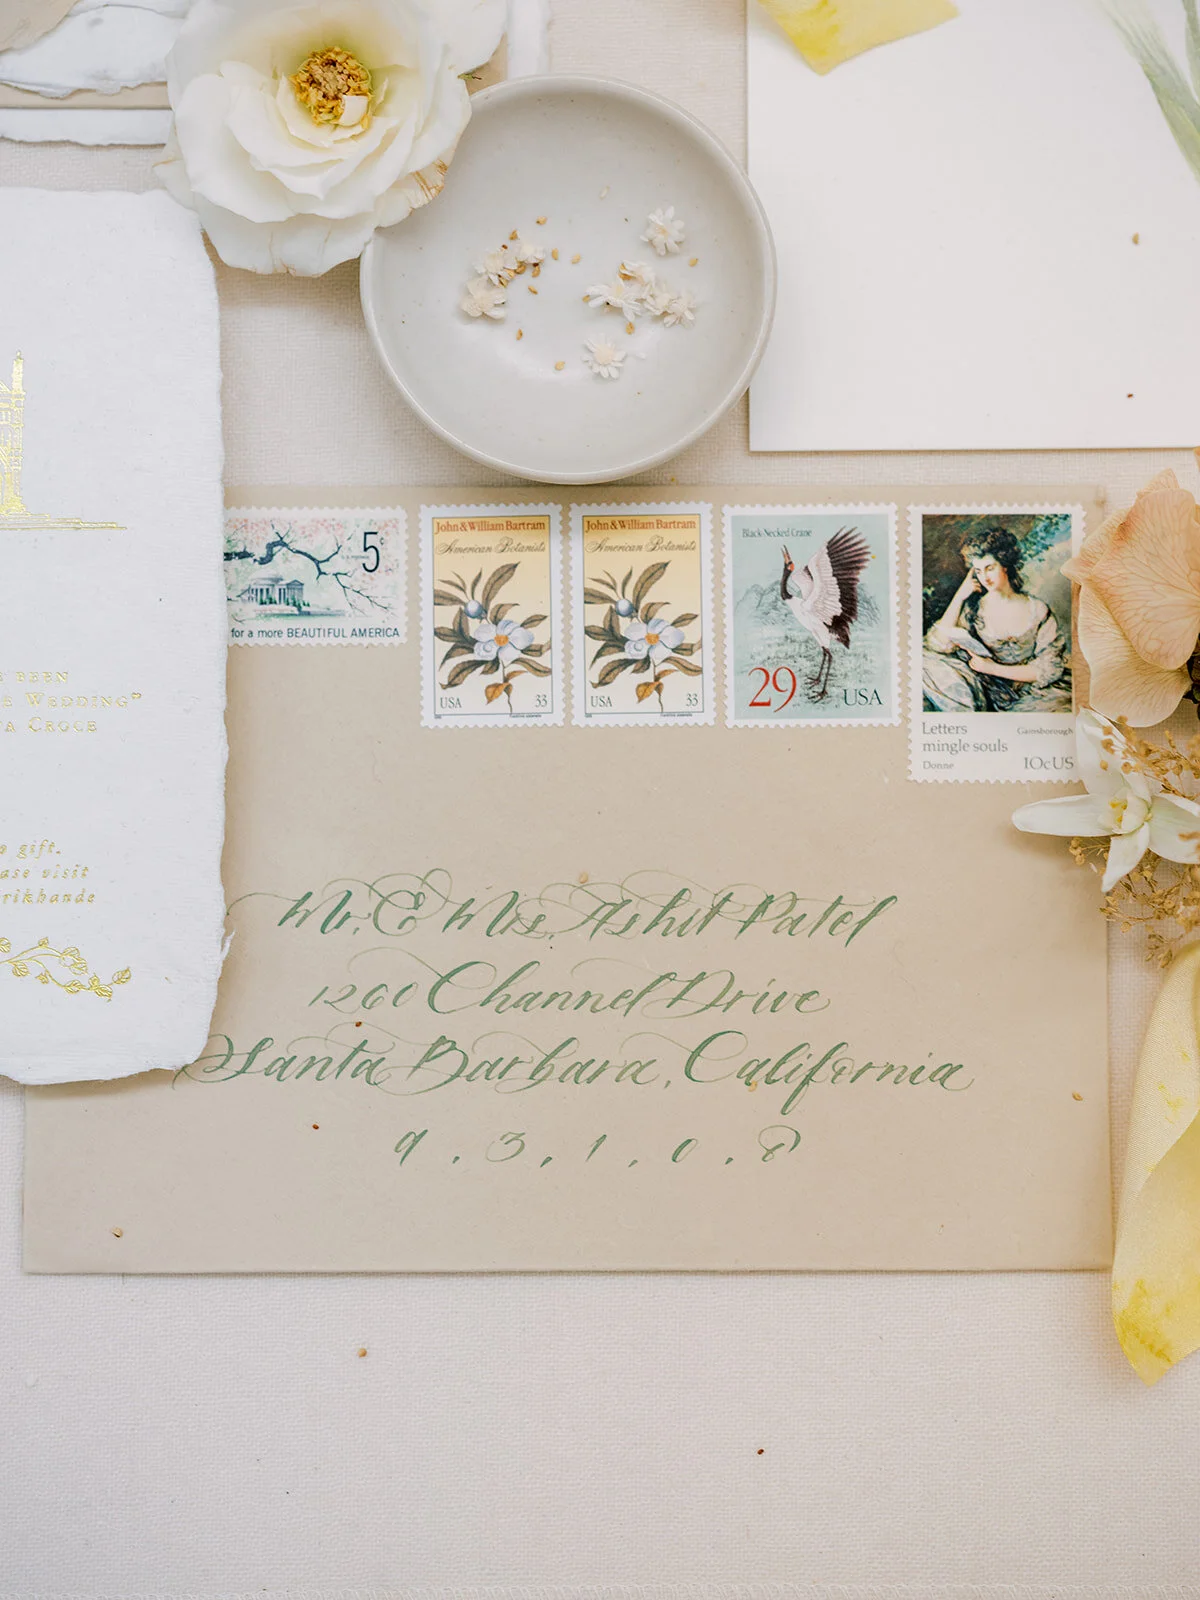 5¢
for a more BEAUTIFUL AMERICA
John & William Bartram
American Botanists
USA 33
John & William Bartram
American Botanists
USA 33
Black-Necked Crane
29 USA
Letters Gainsborough
mingle souls
Donne 10cUS
BEEN
WEDDING"
A CROCE
gift.
visit
rikhande
Mr. & Mrs. Ashit Patel
1260 Channel Drive
Santa Barbara, California
9 . 3 . 1 . 0 . 8